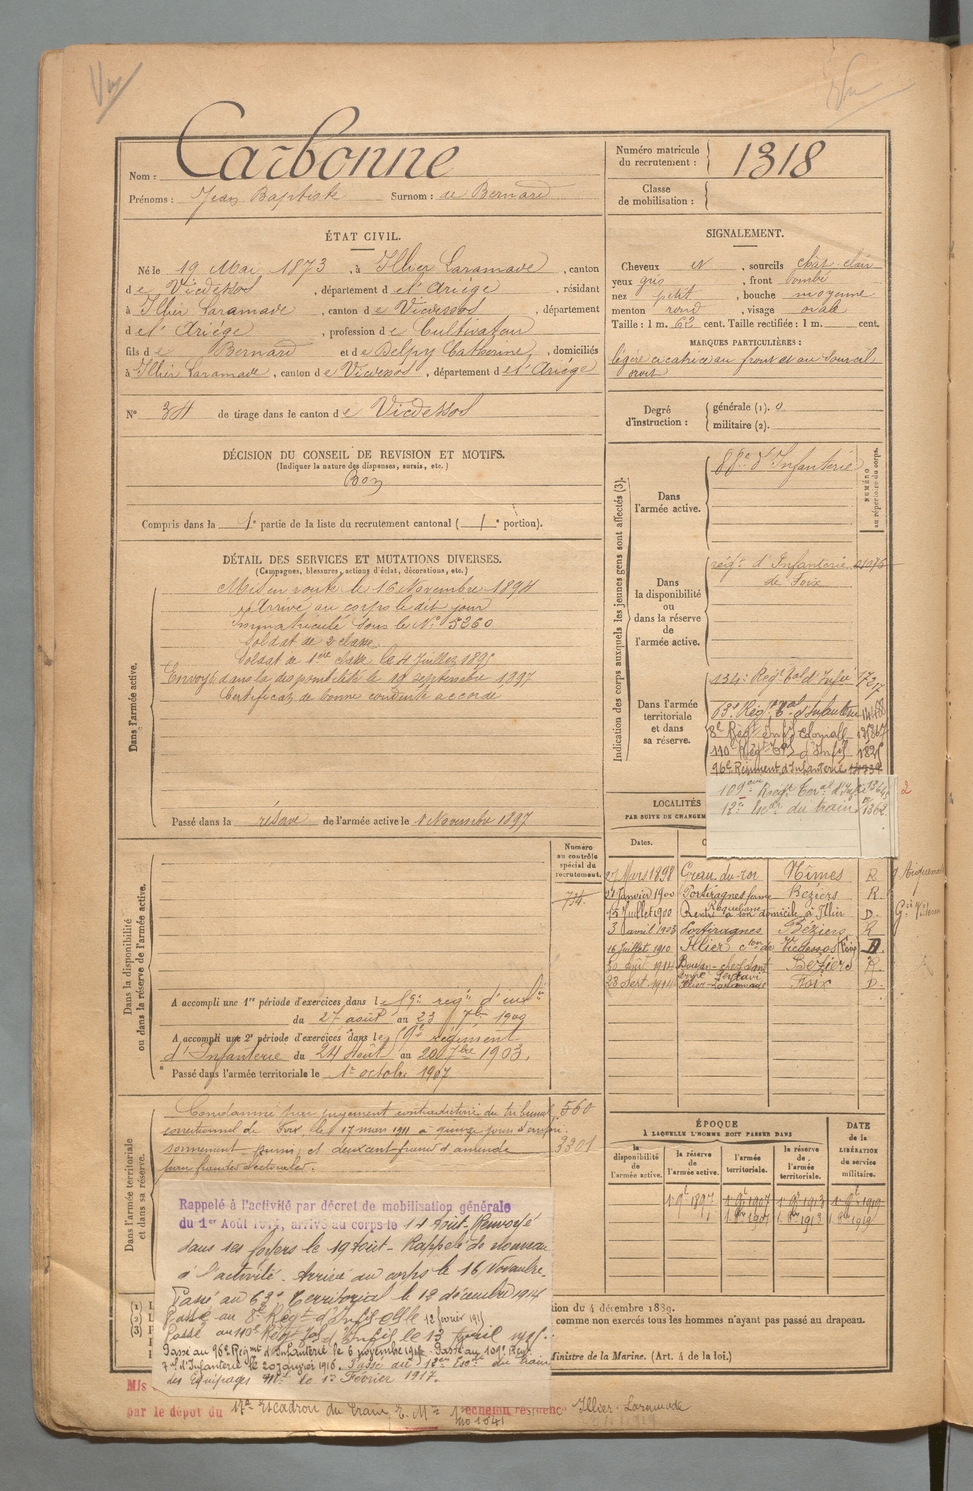 Nom : Carbonne
Prénoms : Jean Baptiste Surnom : de Bernard
Numéro matricule du recrutement : 1318
Classe de mobilisation :
ÉTAT CIVIL.
Né le 19 Mai 1873, à Illier Laramade, canton
de Vicdessos, département de l'Ariége, résidant
à Illier Laramade, canton de Vicdessos, département
de l'Ariége, profession de Cultivateur
fils de Bernard et de Delpy Catherine, domiciliés
à Illier Laramade, canton de Vicdessos, département de l'Ariége
N° 34 de tirage dans le canton de Vicdessos
SIGNALEMENT.
Cheveux N, sourcils chât. clair
yeux gris, front bombé
nez petit, bouche moyenne
menton rond, visage ovale
Taille : 1 m. 62 cent. Taille rectifiée : 1 m. cent.
MARQUES PARTICULIÈRES :
légère cicatrice au front et au sourcil
droit
Degré d'instruction : générale (1). 0
militaire (2).
DÉCISION DU CONSEIL DE REVISION ET MOTIFS.
(Indiquer la nature des dispenses, sursis, etc.)
Bon
Compris dans la 1e partie de la liste du recrutement cantonal (1e portion).
DÉTAIL DES SERVICES ET MUTATIONS DIVERSES.
(Campagnes, blessures, actions d'éclat, décorations, etc.)
Dans l'armée active.
Mis en route le 16 Novembre 1894
Arrivé au corps le dit jour
Immatriculé sous le N° 5260
Soldat de 2e classe
Soldat de 1ère classe le 4 Juillet 1895
Envoyé dans la disponibilité le 19 septembre 1897
Certificat de bonne conduite accordé
Passé dans la réserve de l'armée active le 1 Novembre 1897
Indication des corps auxquels les jeunes gens sont affectés (3).
NUMÉRO au répertoire du corps.
Dans l'armée active.
88e d'Infanterie
Dans la disponibilité ou dans la réserve de l'armée active.
régt d'Infanterie
de Foix
Dans l'armée territoriale et dans sa réserve.
134e Régt tal d'Infie
63e Régt tal d'Infanterie
8e Régt Infie Coloniale
110e Régt tal d'Infie
96e Régiment d'Infanterie
109eme Regt Ter.al d'Infie
12e Esc. du train 1362
2
LOCALITÉS
PAR SUITE DE CHANGEM
Dates.
27 Mars 1898 Grau du roi Nîmes R
21 Janvier 1900 Portiragnes Béziers R.
15 Juillet 1900 Rentré à son domicile à Illier D.
3 avril 1903 Portiragnes Béziers R
16 Juillet 1910 Illier Vicdessos Foix D
Béziers R.
28 Sept 1914 Illier-Laramade Foix D.
Dans la disponibilité ou dans la réserve de l'armée active.
Numéro au contrôle spécial du recrutement.
A accompli une 1re période d'exercices dans le 59e régt d'infie
du 27 août au 23 7bre 1900
A accompli une 2e période d'exercices dans le 59e régiment
d'Infanterie du 24 Août au 20 7bre 1903.
Passé dans l'armée territoriale le 1er octobre 1907
Dans l'armée territoriale et dans sa réserve.
Condamné par jugement contradictoire du tribunal
correctionnel de Foix, le 17 mars 1911 à quinze jours d'empri-
sonnement et deux cent francs d'amende
pour fraudes électorales.
560
3301
Rappelé à l'activité par décret de mobilisation générale
du 1er Août 1914, arrivé au corps le 14 Août. Renvoyé
dans ses foyers le 19 Août - Rappelé de nouveau
à l'activité. Arrivé au corps le 16 Novembre.
Passé au 63e Territorial le 12 décembre 1914
Passé au 8e Régt d'Infie Clle 12 février 1915
Passé au 110e Régt tal d'Infie le 13 Avril 1915.
Passé au 96e Régmt d'Infanterie le 6 novembre 1915. Passé au 109e Regt
tal d'Infanterie le 20 janvier 1916. Passé au 12eme Esc. du train
des Equipages Mil. le 1er Février 1917.
ÉPOQUE
À LAQUELLE L'HOMME DOIT PASSER DANS
la disponibilité de l'armée active.
la réserve de l'armée active.
l'armée territoriale.
la réserve de l'armée territoriale.
DATE de la LIBÉRATION du service militaire.
1 9e 1897 1 9e 1907 1 9e 1913 1 9e 1919
1. 8bre 1907 1. 8bre 1913 1. 8bre 1919
(1)
(2)
(3)
tion du 4 décembre 1889.
comme non exercés tous les hommes n'ayant pas passé au drapeau.
Ministre de la Marine. (Art. 4 de la loi.)
Mis
par le dépôt du 17e Escadron du Train échelon résidence Illier-Laramade